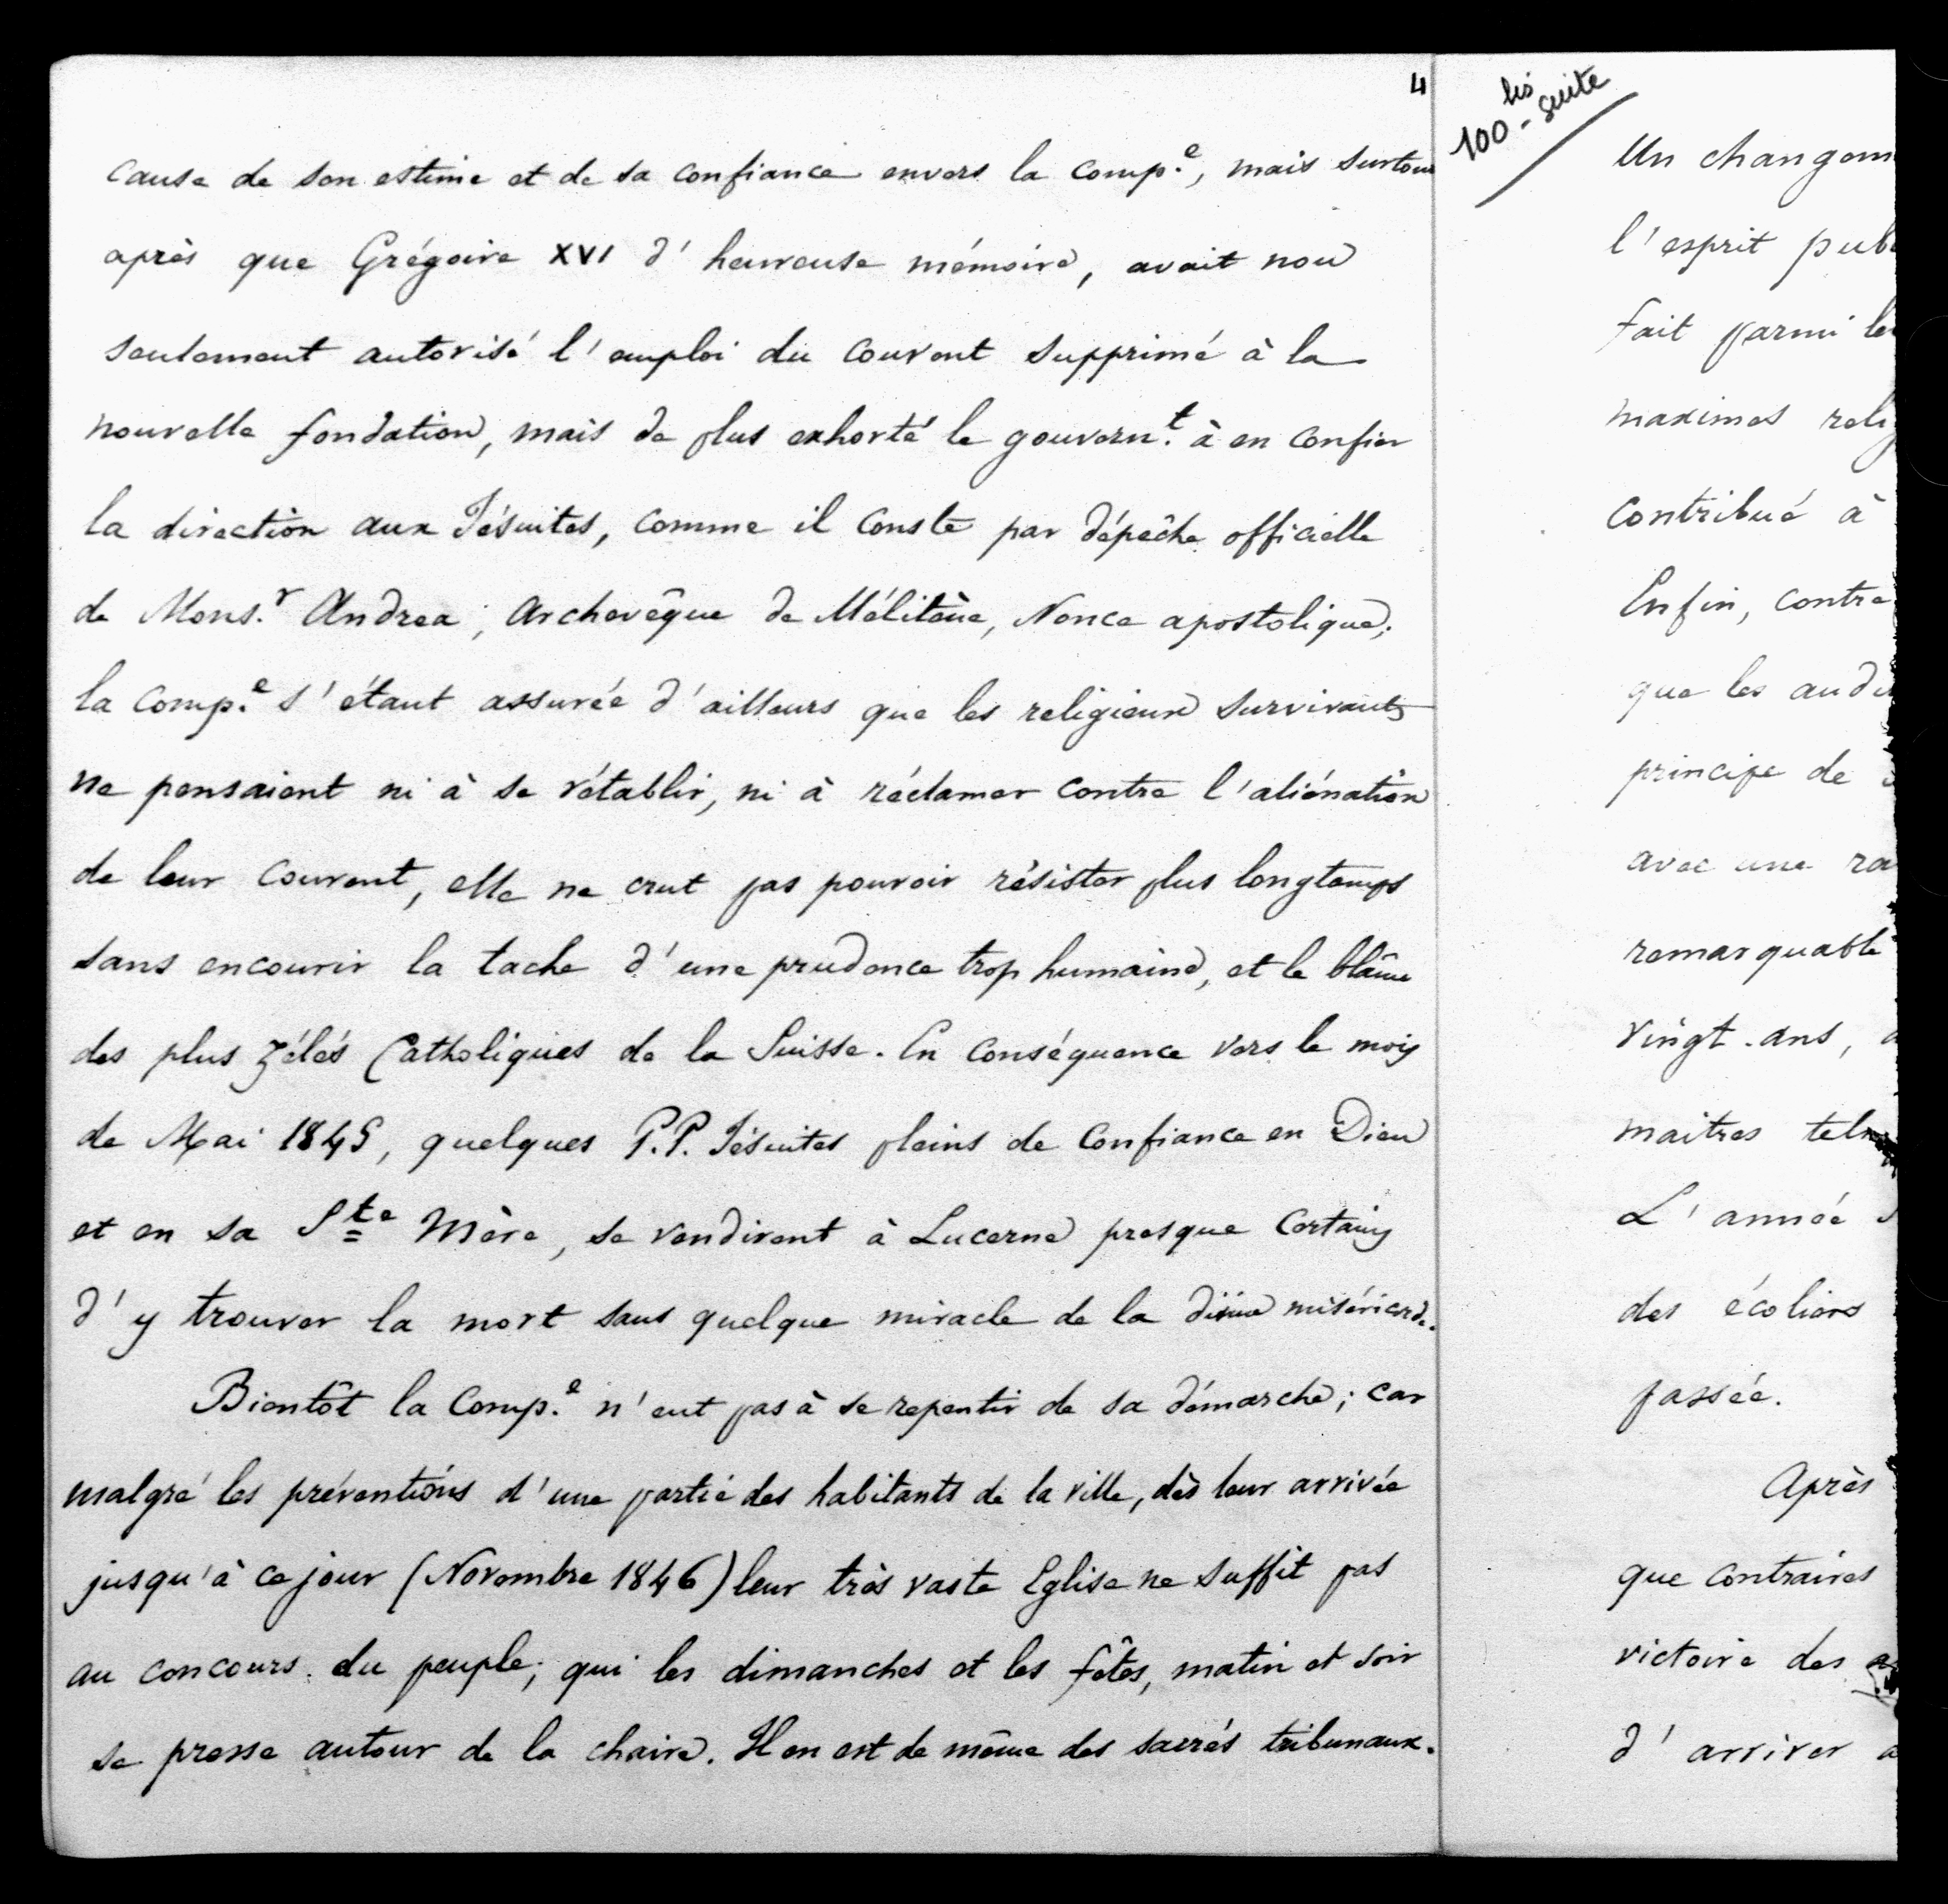 4
cause de son estime et de sa confiance envers la Comp.e, mais surtout
après que Grégoire XVI d'heureuse mémoire, avait non
seulement autorisé l'emploi du Couvent supprimé à la
nouvelle fondation, mais de plus exhorté le gouvern.t à en confier
la direction aux Jésuites, comme il conste par dépêche officielle
de Mons.r Andrea, Archevêque de Mélitène, Nonce apostolique;
la Comp.e s'étant assurée d'ailleurs que les religieux survivants
ne pensaient ni à se rétablir, ni à réclamer contre l'aliénation
de leur Couvent, elle ne crut pas pouvoir résister plus longtemps
sans encourir la tache d'une prudence trop humaine, et le blâme
des plus zélés Catholiques de la Suisse. En conséquence vers le mois
de Mai 1845, quelques P.P. Jésuites pleins de confiance en Dieu
et en sa Ste Mère, se rendirent à Lucerne presque certains
d'y trouver la mort sans quelque miracle de la divine miséricorde.
Bientôt la Comp.e n'eut pas à se repentir de sa démarche; car
malgré les préventions d'une partie des habitants de la ville, dès leur arrivée
jusqu'à ce jour (Novembre 1846) leur très vaste Eglise ne suffit pas
au concours du peuple, qui les dimanches et les fêtes, matin et soir
se presse autour de la chaire. Il en est de même des sacrés tribunaux.
100 bis - suite
Un changem
l'esprit pub
fait parmi les
maximes relig
contribué à
Enfin, contre
que les audi
principe de
avec une ra
remarquable
vingt-ans,
maitres tel
L'année
des écoliers
passée.
Après
que contraires
victoire des
d'arriver a